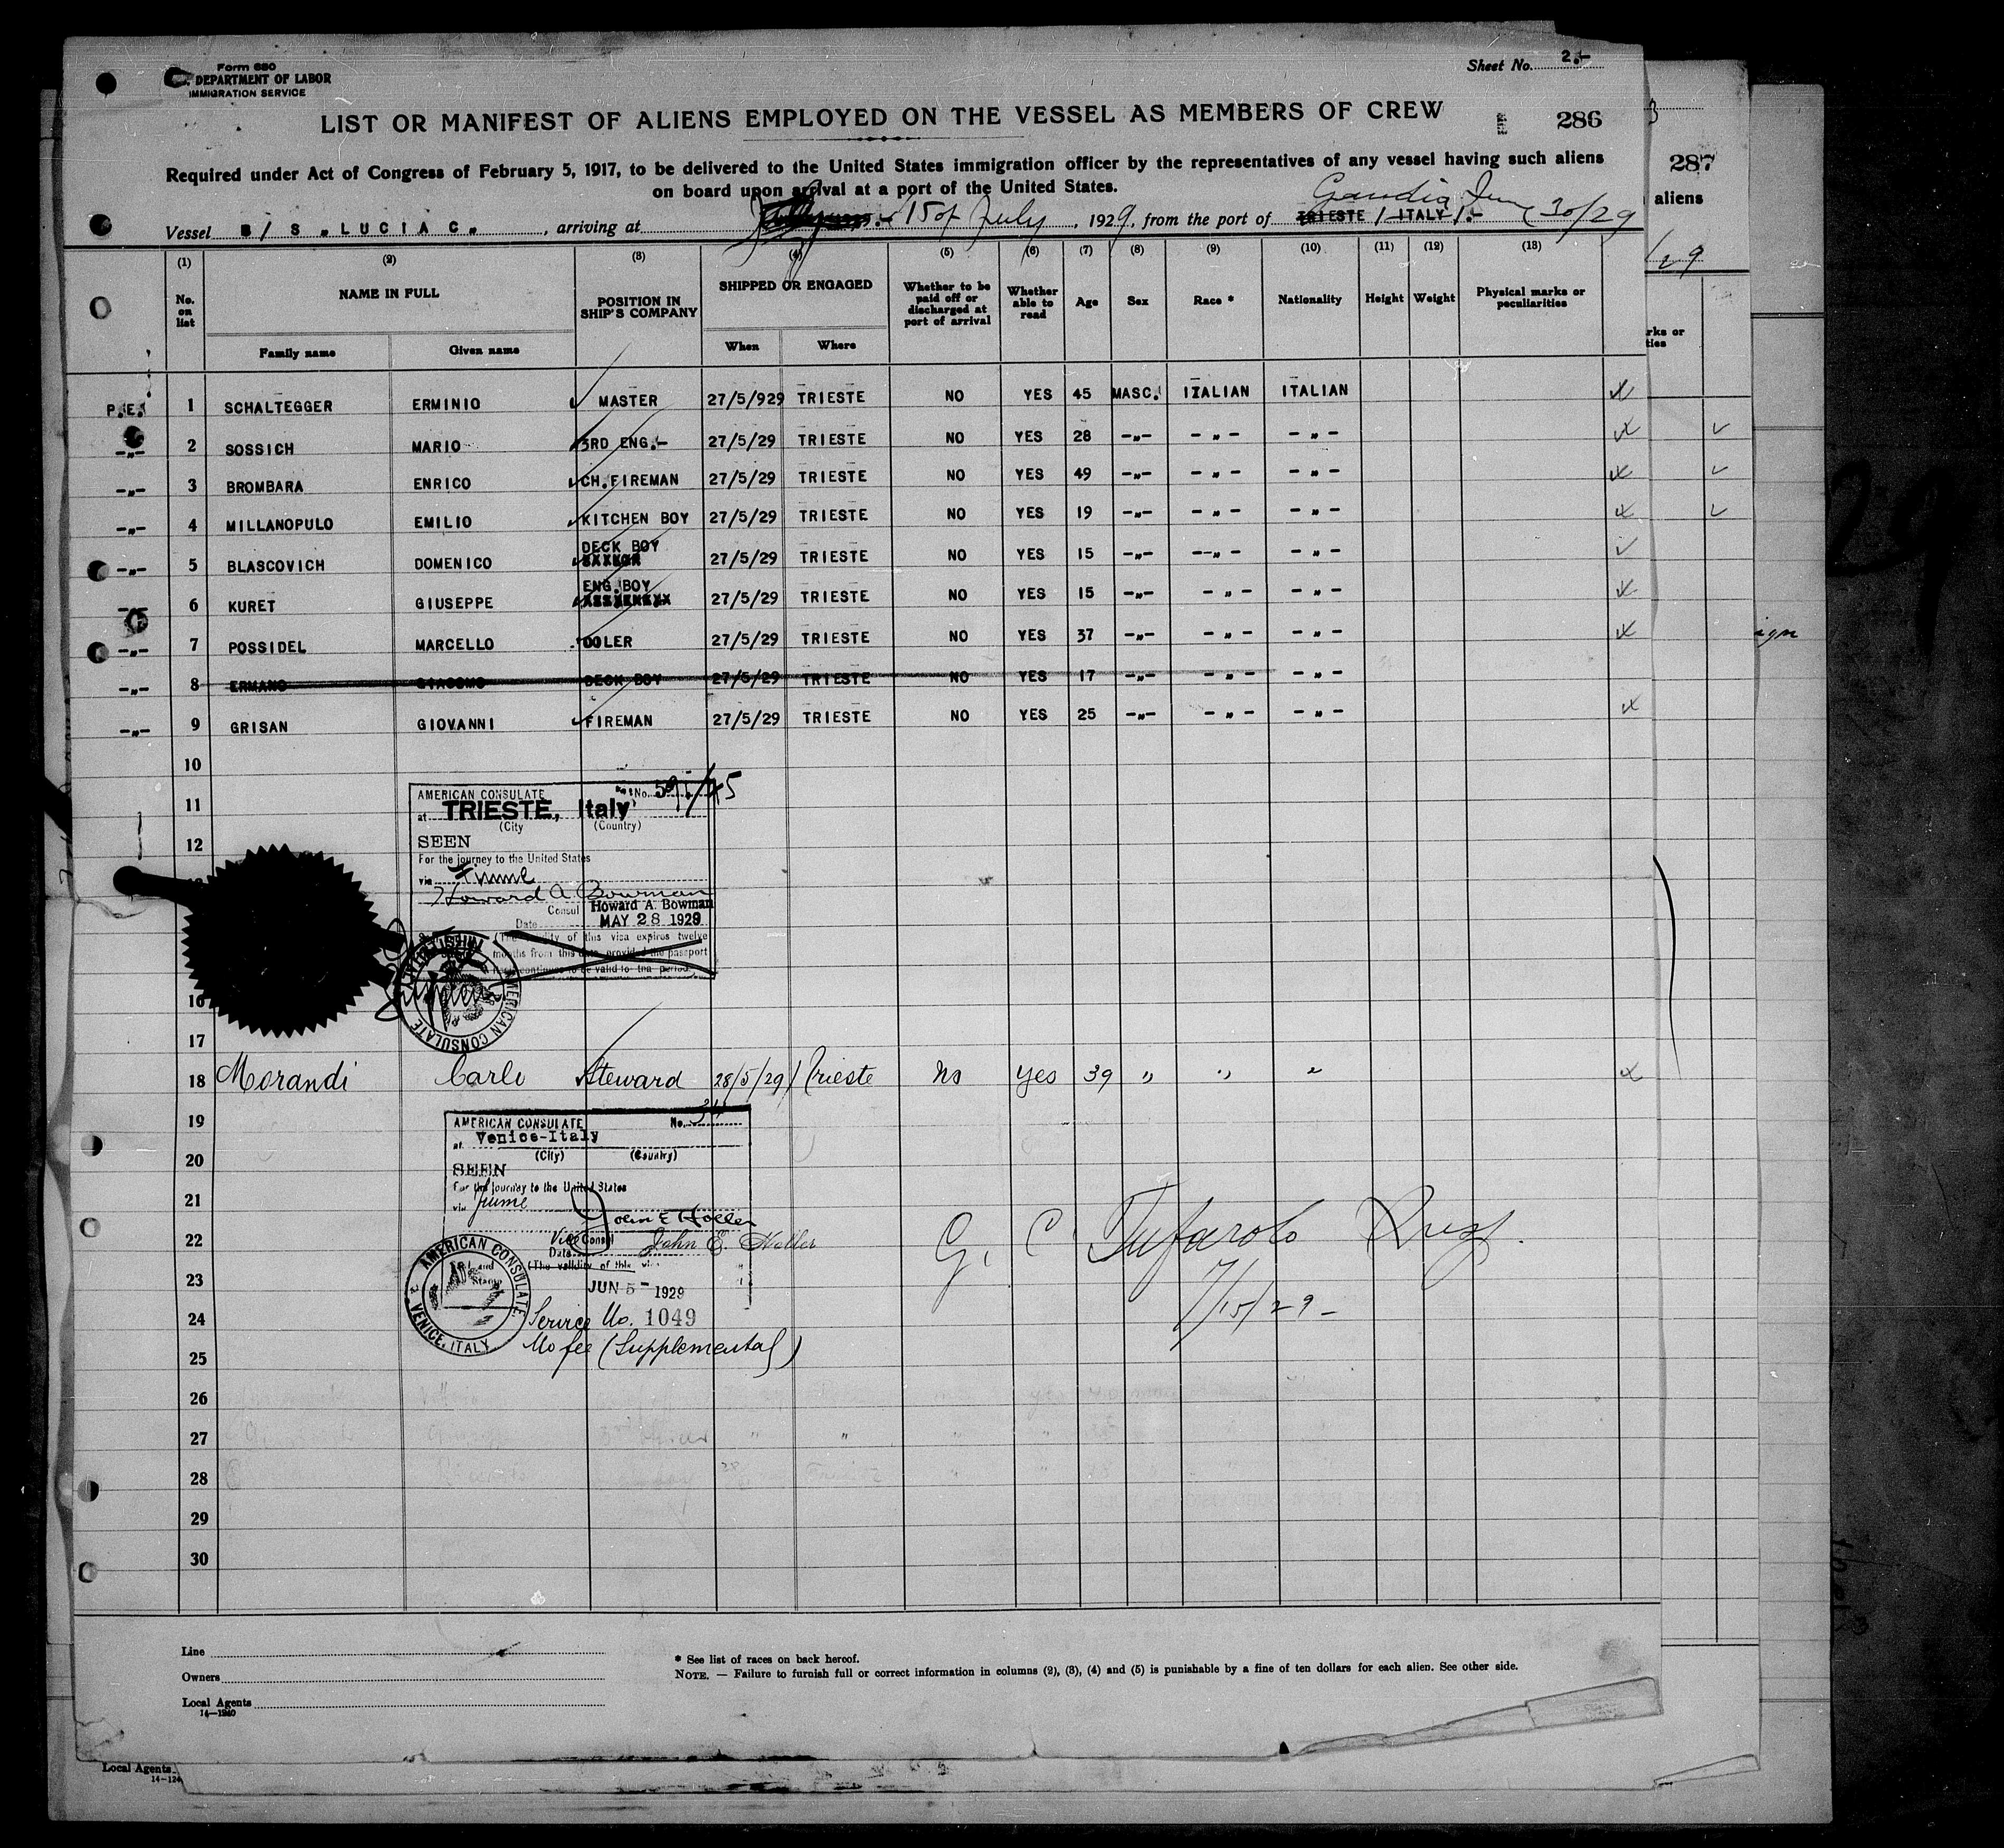 Form 680
DEPARTMENT OF LABOR
IMMIGRATION SERVICE
Sheet No. 2.-
LIST OR MANIFEST OF ALIENS EMPLOYED ON THE VESSEL AS MEMBERS OF CREW
286
Required under Act of Congress of February 5, 1917, to be delivered to the United States immigration officer by the representatives of any vessel having such aliens
on board upon arrival at a port of the United States.
Vessel S/S "LUCIA C", arriving at 15 of July, 1929, from the port of TRIESTE /ITALY/.- Gandia June 30/29
(1) (2) (3) (4) (5) (6) (7) (8) (9) (10) (11) (12) (13)
No. on list NAME IN FULL POSITION IN SHIP'S COMPANY SHIPPED OR ENGAGED Whether to be paid off or discharged at port of arrival Whether able to read Age Sex Race * Nationality Height Weight Physical marks or peculiarities
Family name Given name When Where
P.E. 1 SCHALTEGGER ERMINIO MASTER 27/5/929 TRIESTE NO YES 45 MASC. ITALIAN ITALIAN
-"- 2 SOSSICH MARIO 3RD ENG.- 27/5/29 TRIESTE NO YES 28 -"- - " - - " -
-"- 3 BROMBARA ENRICO CH.FIREMAN 27/5/29 TRIESTE NO YES 49 -"- - " - - " -
-"- 4 MILLANOPULO EMILIO KITCHEN BOY 27/5/29 TRIESTE NO YES 19 -"- - " - - " -
-"- 5 BLASCOVICH DOMENICO DECK BOY 27/5/29 TRIESTE NO YES 15 -"- --" - - " -
6 KURET GIUSEPPE ENG.BOY 27/5/29 TRIESTE NO YES 15 -"- - " - - " -
-"- 7 POSSIDEL MARCELLO OOLER 27/5/29 TRIESTE NO YES 37 -"- - " - - " -
-"- 8 ERMANO GIACOMO DECK BOY 27/5/29 TRIESTE NO YES 17 -"- - " - - " -
-"- 9 GRISAN GIOVANNI FIREMAN 27/5/29 TRIESTE NO YES 25 -"- - " - - " -
10
11
12
AMERICAN CONSULATE No. 595/45
at TRIESTE, Italy
(City (Country)
SEEN
For the journey to the United States
via Fiume
Howard A Bowman
Consul Howard A. Bowman
Date MAY 28 1929
(The validity of this visa expires twelve
months from this date provided the passport
continues to be valid for the period.
AMERICAN CONSULATE
16
17
18 Morandi Carlo Steward 28/5/29 Trieste No yes 39 " " "
19
20
21
22
23
24
25
26
27
28
29
30
AMERICAN CONSULATE No.
at Venice-Italy
(City) (Country)
SEEN
For the journey to the United States
via Fiume
John E Holler
Vice Consul John E. Holler
Date
(The validity of this
JUN 5- 1929
AMERICAN CONSULATE
VENICE, ITALY
Service No. 1049
No fee (Supplemental)
G. C. Tufarolo
7/15/29-
Line
Owners
Local Agents
14-1240
* See list of races on back hereof.
NOTE. — Failure to furnish full or correct information in columns (2), (3), (4) and (5) is punishable by a fine of ten dollars for each alien. See other side.
287
aliens
Local Agents
14-124